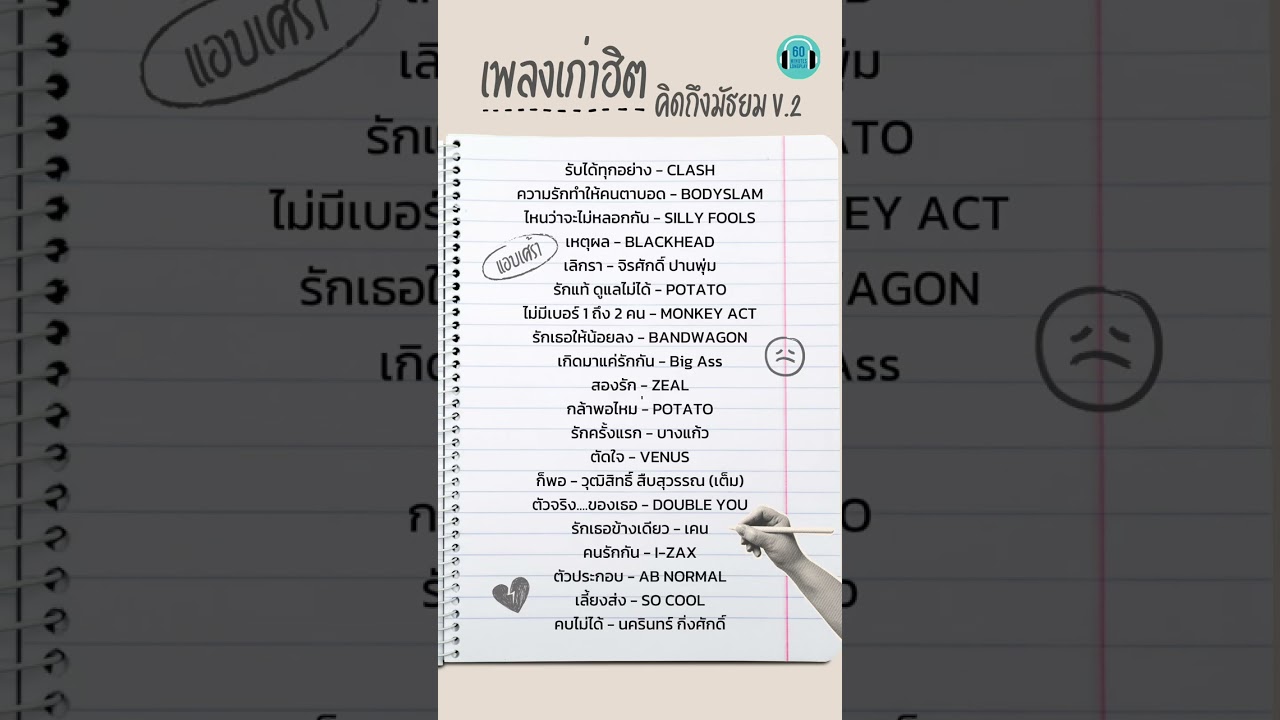 เพลงเก่าฮิต
คิดถึงมัธยม V.2
60
MINUTES
LONGPLAY
รับได้ทุกอย่าง - CLASH
ความรักทำให้คนตาบอด - BODYSLAM
ไหนว่าจะไม่หลอกกัน - SILLY FOOLS
เหตุผล - BLACKHEAD
แอบเศร้า
เลิกรา - จิรศักดิ์ ปานพุ่ม
รักแท้ ดูแลไม่ได้ - POTATO
ไม่มีเบอร์ 1 ถึง 2 คน - MONKEY ACT
รักเธอให้น้อยลง - BANDWAGON
เกิดมาแค่รักกัน - Big Ass
สองรัก - ZEAL
กล้าพอไหม - POTATO
รักครั้งแรก - บางแก้ว
ตัดใจ - VENUS
ก็พอ - วุฒิสิทธิ์ สืบสุวรรณ (เต็ม)
ตัวจริง....ของเธอ - DOUBLE YOU
รักเธอข้างเดียว - เคน
คนรักกัน - I-ZAX
ตัวประกอบ - AB NORMAL
เลี้ยงส่ง - SO COOL
คบไม่ได้ - นครินทร์ กิ่งศักดิ์